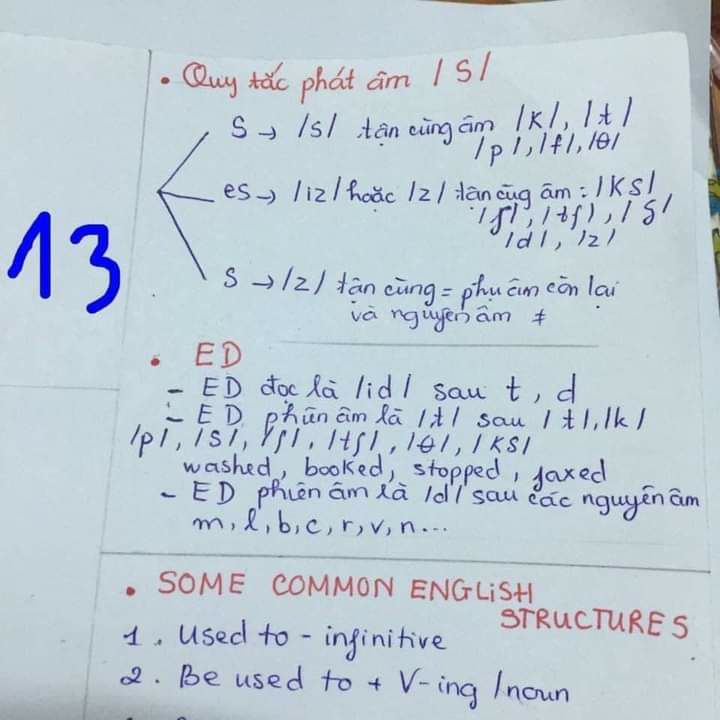 • Quy tắc phát âm /S/
S → /s/ tận cùng âm /k/, /t/
/p/, /f/, /θ/
es → /iz/ hoặc /z/ tận cùg âm: /KS/
/ʃ/, /tʃ/, /S/
/d/, /z/
13
S → /z/ tận cùng = phụ âm còn lại
và nguyên âm ≠
• ED
- ED đọc là /id/ sau t, d
- ED phiên âm là /t/ sau /t/, /k/
/p/, /S/, /ʃ/, /tʃ/, /θ/, /KS/
washed, booked, stopped, faxed
- ED phiên âm là /d/ sau các nguyên âm
m, l, b, c, r, v, n...
• SOME COMMON ENGLiSH
STRUCTURES
1. Used to - infinitive
2. Be used to + V-ing /noun